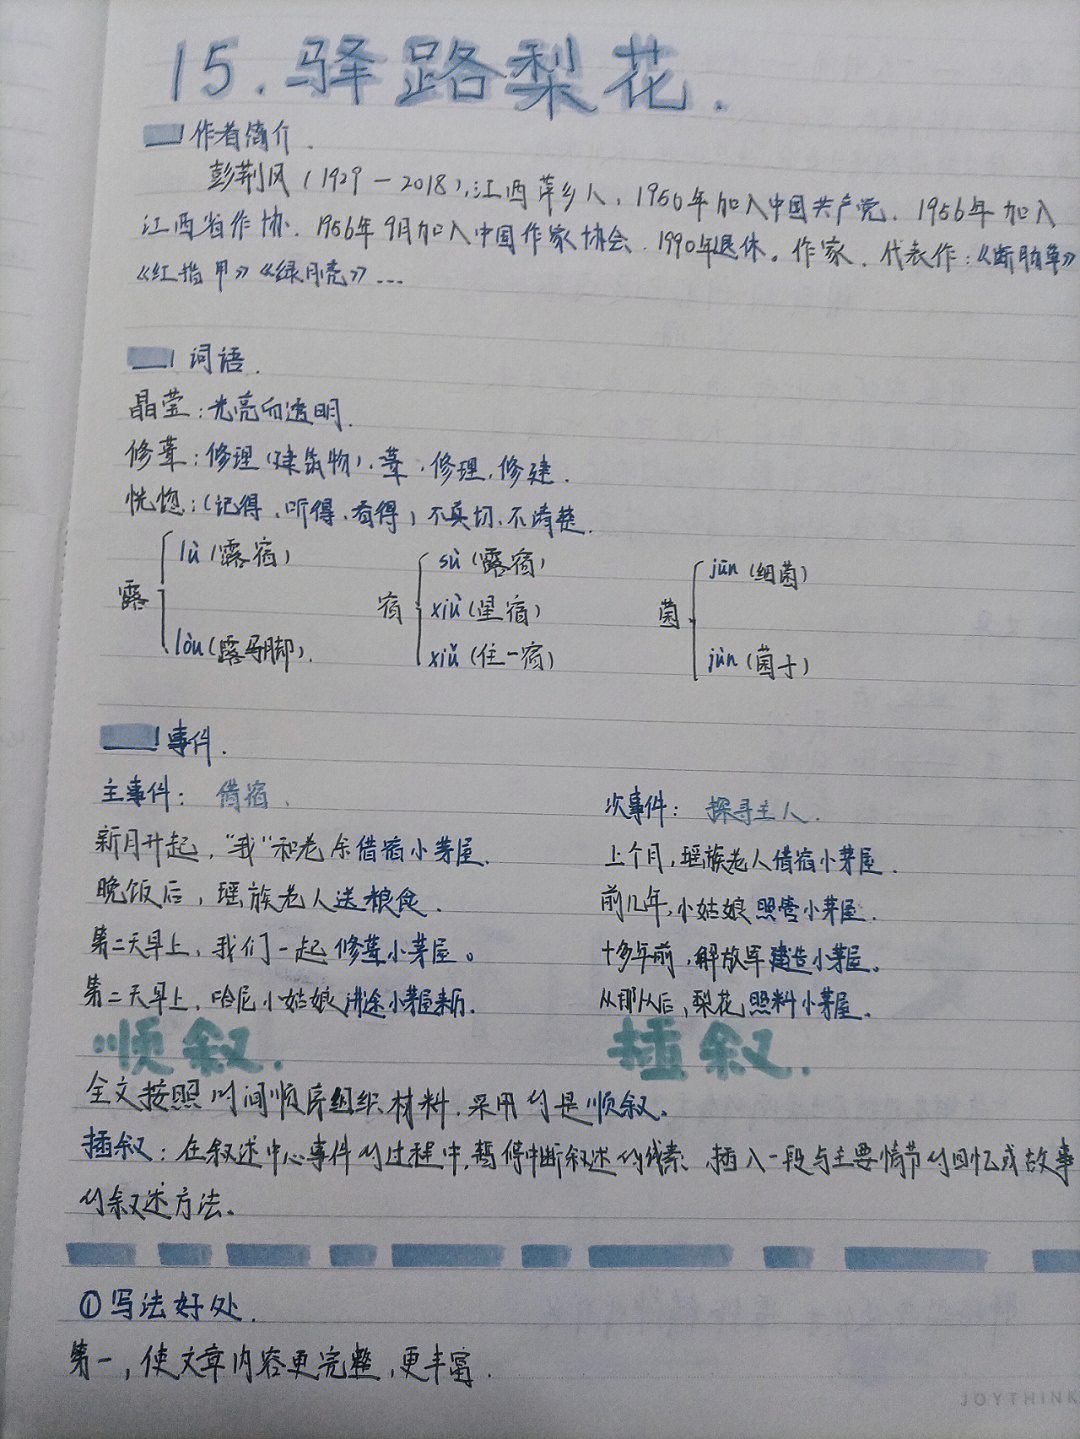 15.驿路梨花.
作者简介.
彭荆风(1929—2018),江西萍乡人,1950年加入中国共产党.1956年加入
江西省作协.1956年9月加入中国作家协会.1990年退休。作家.代表作:《断肠草》
《红指甲》《绿月亮》...
词语.
晶莹:光亮而透明.
修葺:修理(建筑物).葺.修理,修建.
恍惚:(记得、听得、看得)不真切,不清楚.
露 lù(露宿) lòu(露马脚).
宿 sù(露宿) xiù(星宿) xiǔ(住一宿)
菌 jūn(细菌) jùn(菌子)
事件.
主事件: 借宿.
新月升起,"我"和老余借宿小茅屋.
晚饭后,瑶族老人送粮食.
第二天早上,我们一起修葺小茅屋。
第二天早上,哈尼小姑娘讲途小茅屋来历.
顺叙.
次事件: 探寻主人.
上个月,瑶族老人借宿小茅屋.
前几年,小姑娘照管小茅屋.
十多年前,解放军建造小茅屋。
从那以后,梨花照料小茅屋。
插叙.
全文按照时间顺序组织材料,采用的是顺叙。
插叙:在叙述中心事件的过程中,暂停中断叙述的线索,插入一段与主要情节的回忆或故事
的叙述方法。
①写法好处.
第一,使文章内容更完整,更丰富.
JOYTHINK